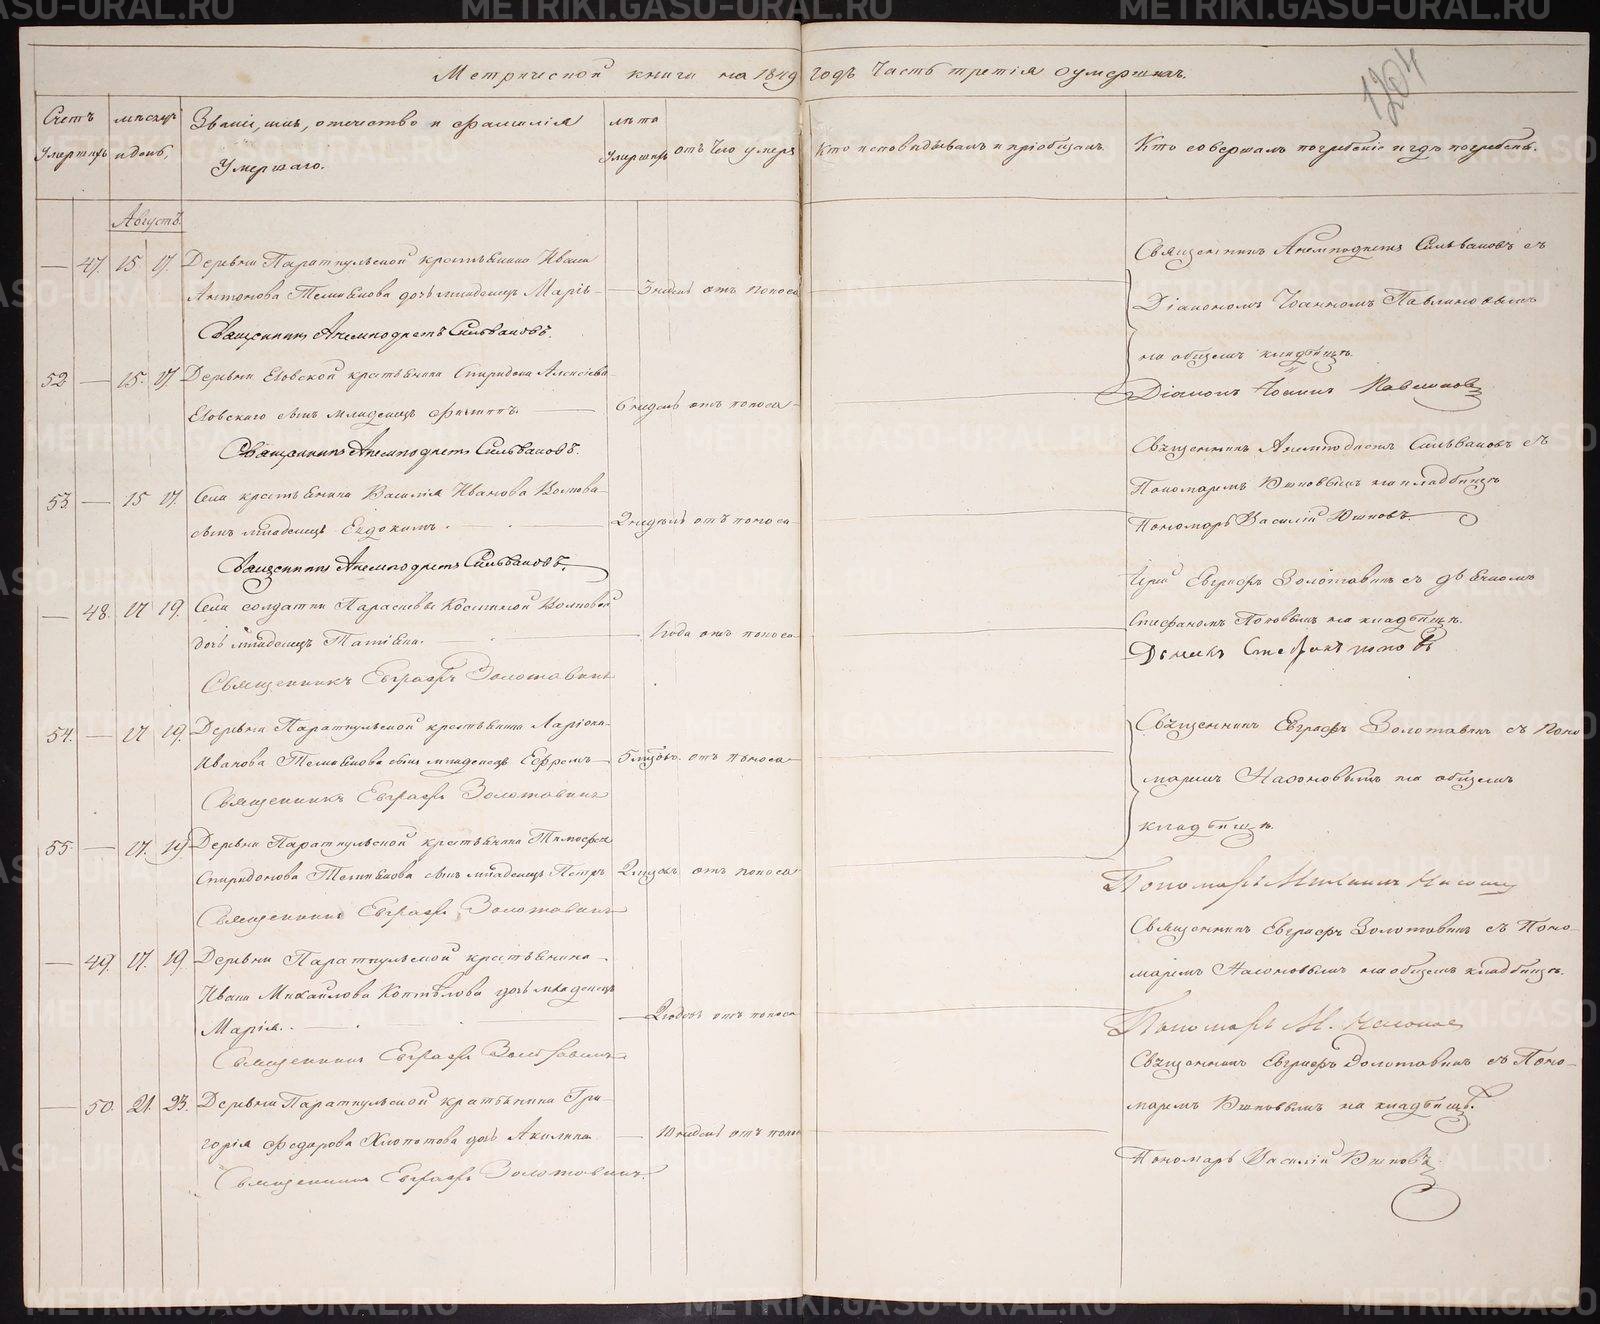 Метрической книги на 1849 годъ Часть третія о умершихъ.
1264
Счетъ умершихъ
мѣсяцъ и день,
Званіе, имя, отечество и фамилія
Умершаго.
лѣта умершихъ
отъ чего умеръ
Кто исповѣдывалъ и пріобщалъ.
Кто совершалъ погребеніе и гдѣ погребены.
Августъ.
— 47. 15 17. Деревни Параткульской крестьянина Ивана
Антонова Телминова дочь младенецъ Марія — 3 недѣль отъ поноса
Священникъ Анемподистъ Сильвановъ.
Священникъ Анемподистъ Сильвановъ съ
Діакономъ Іоанномъ Павлиновымъ
на общемъ кладбищѣ.
Діаконъ Іоаннъ Павлиновъ
52 — 15. 17 Деревни Еловской крестьянина Спиридона Алексіева
Еловскаго сынъ младенецъ Филиппъ. — 6 недѣль отъ поноса
Священникъ Анемподистъ Сильвановъ.
53. — 15 17. Села крестьянина Василія Иванова Волкова
сынъ младенецъ Евдокимъ. — 2 недѣль отъ поноса
Священникъ Анемподистъ Сильвановъ.
Священникъ Анемподистъ Сильвановъ съ
Пономаремъ Юшковымъ на кладбищѣ
Пономарь Василій Юшковъ.
— 48. 17 19. Села солдатки Парасковьи Косминой Волковой
дочь младенецъ Татіяна. — 1 года отъ поноса
Священникъ Евграфъ Золотавинъ
Іерей Евграфъ Золотавинъ съ дьячкомъ
Стефаномъ Поповымъ на кладбищѣ.
Дьячекъ Стефанъ Поповъ
54. — 17 19. Деревни Параткульской крестьянина Ларіона
Иванова Телминова сынъ младенецъ Ефремъ — отъ поноса
Священникъ Евграфъ Золотавинъ
Священникъ Евграфъ Золотавинъ съ Поно
маремъ Насоновымъ на общемъ
кладбищѣ.
Пономарь
55. — 17. 19 Деревни Параткульской крестьянина Тимофея
Спиридонова Телминова сынъ младенецъ Петръ отъ поноса
Священникъ Евграфъ Золотавинъ
Священникъ Евграфъ Золотавинъ съ Поно-
маремъ Насоновымъ на общемъ кладбищѣ.
Пономарь М. Насонов
— 49. 17. 19. Деревни Параткульской крестьянина
Ивана Михайлова Коптѣлова дочь младенецъ
Марія. — 2 годовъ отъ поноса
Священникъ Евграфъ Золотавинъ
— 50. 21. 23. Деревни Параткульской крестьянина Гри-
горія Федорова Хлопотова дочь Акилина — 10 недѣль отъ поноса
Священникъ Евграфъ Золотавинъ.
Священникъ Евграфъ Золотавинъ съ Поно-
маремъ Юшковымъ на кладбищѣ.
Пономарь Василій Юшковъ
METRIKI.GASO-URAL.RU